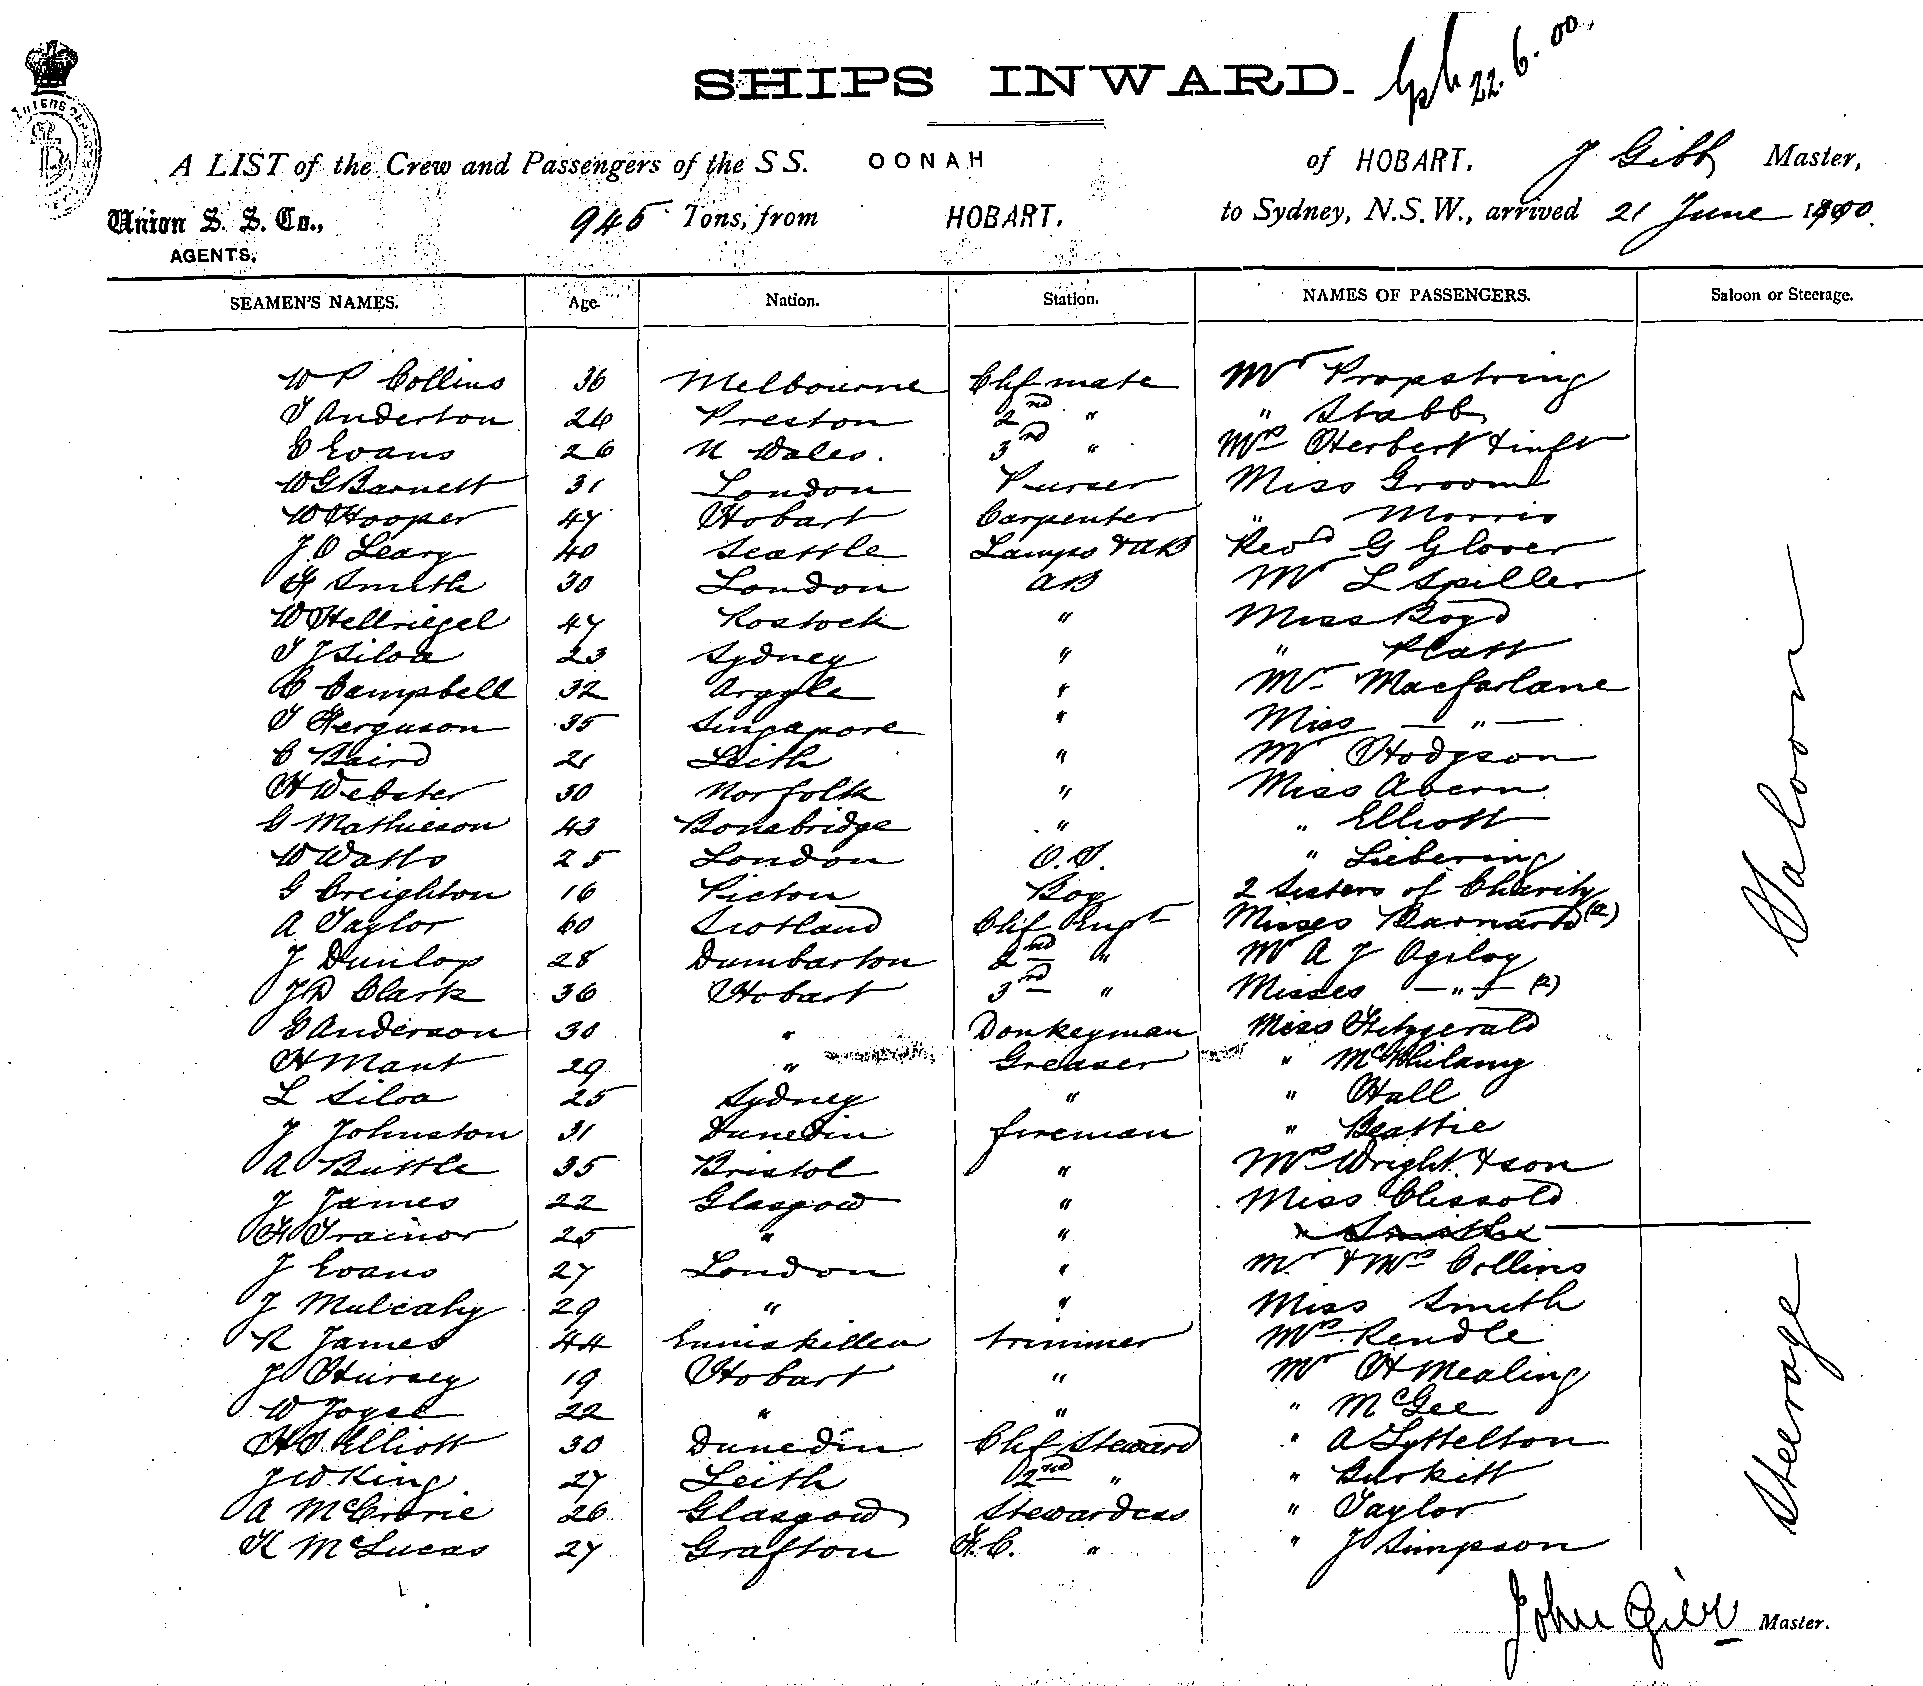 SHIPS INWARD. 22.6.00.
A LIST of the Crew and Passengers of the SS. OONAH of HOBART. J Gibb Master,
Union S. S. Co., 945 Tons, from HOBART. to Sydney, N.S.W., arrived 21 June 1900.
AGENTS.
SEAMEN'S NAMES. Age. Nation. Station. NAMES OF PASSENGERS. Saloon or Steerage.
W P Collins 36 Melbourne Chf mate Mr Propstring
T Anderton 26 Preston 2nd " " Stabb
E Evans 26 N Wales. 3rd " Mrs Herbert & inft
W G Barnett 31 London Purser Miss Groom
W Hooper 47 Hobart Carpenter " Morris
J O Leary 40 Seattle Lamps & AB Revd G Glover
F Smith 30 London AB Mr L Spiller
W Hellriegel 47 Rostock " Miss Boyd
T J Siloa 23 Sydney " " Platt
C Campbell 32 Argyle " Mr Macfarlane
T Ferguson 35 Singapore " Miss — " —
C Baird 21 Leith " Mr Hodgson
H Webster 30 Norfolk " Miss Ahern
G Mathieson 43 Bonebridge " " Elliott
W Watts 25 London O.S. " Liebering
G Creighton 16 Picton Boy 2 Sisters of Charity
A Taylor 60 Scotland Chf Engr Misses Barnard (2)
J Dunlop 28 Dumbarton 2nd " Mr A J Ogilvy
J D Clark 36 Hobart 3rd " Misses — " — (2)
E Anderson 30 " Donkeyman Miss Fitzgerald
H Mant 29 " Greaser "
L Siloa 25 Sydney " " Hall
J Johnston 31 Dunedin fireman " Beattie
A Buttle 35 Bristol " Mrs Wright & son
J James 22 Glasgow " Miss Clissold
F Trainor 25 " " "
J Evans 27 London " Mr & Mrs Collins
J Mulcahy 29 " " Miss Smith
R James 44 Enniskillen trimmer Mrs Rendle
J Hursey 19 Hobart " Mr H Mealing
W Joyce 22 " " " McGee
H S Elliott 30 Dunedin Chf Steward " A Lyttelton
J W King 27 Leith 2nd " " Burkitt
A McCrorie 26 Glasgow Stewardess " Taylor
K McLucas 27 Grafton F.C. " " J Simpson
Saloon
Steerage
John Gibb Master.